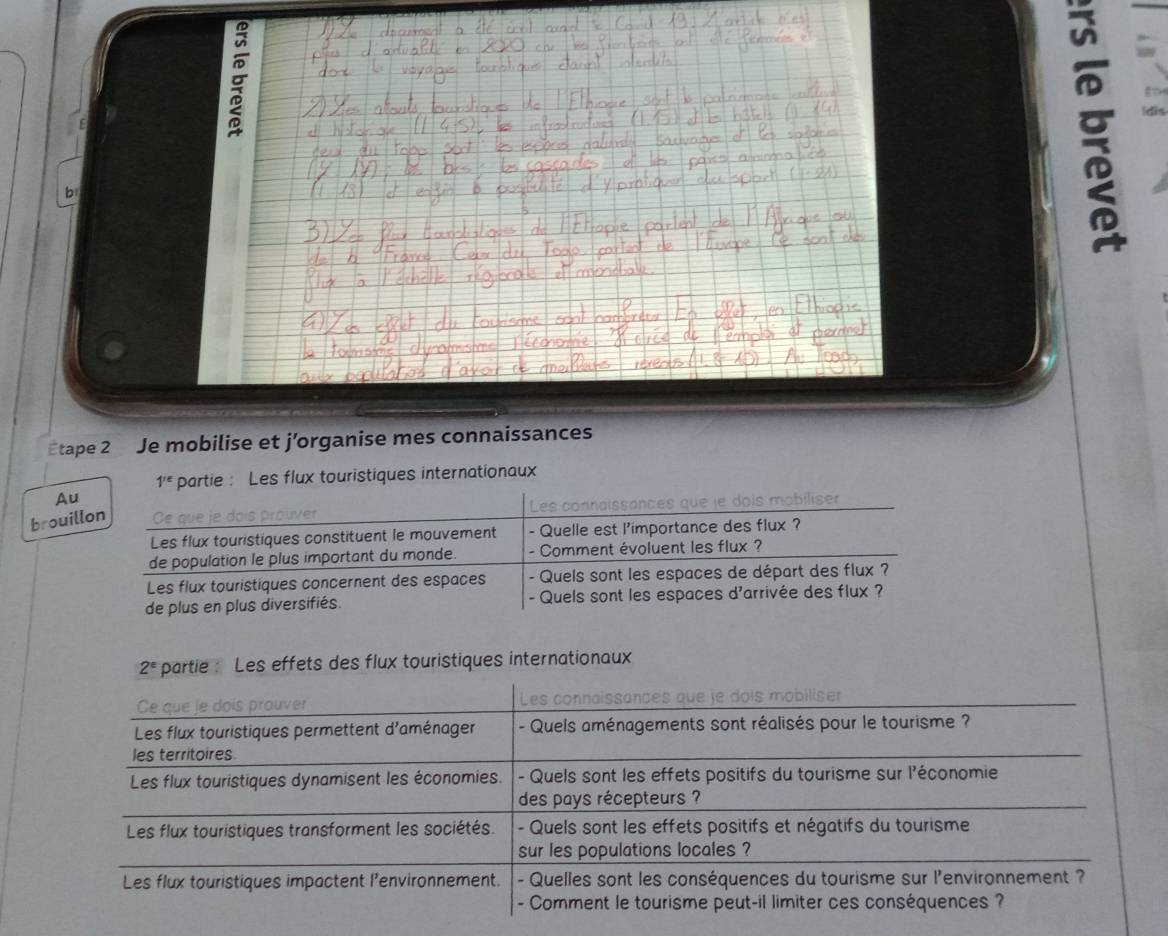 ers le brevet
1) Le document a été écrit avant le Covid 19. L'article n'est
plus d'actualité en 2020 car les frontières ont été fermées et
donc les voyages touristiques étaient interdits
2) Les atouts touristiques de l'Ethiopie sont le patrimoine culturel
les infrastructures
ceux du Togo sont les espaces naturels sauvages et
les cascades et les parcs animaliers
et enfin la possibilité d'y pratiquer du sport
3) Les flux touristiques de l'Ethiopie partent de l'Afrique ou
de la France. Ceux du Togo partent de l'Europe. Ce sont des
flux à l'échelle régionale et mondiale.
4) Les effets du tourisme sont nombreux. En effet, en Ethiopie
le tourisme dynamisme l'économie. Il crée de l'emploi et permet
aux populations d'avoir de meilleurs revenus Au Togo,
ers le brevet
Étape 2 Je mobilise et j'organise mes connaissances
Au
brouillon
1re partie : Les flux touristiques internationaux
Ce que je dois prouver Les connaissances que je dois mobiliser
Les flux touristiques constituent le mouvement - Quelle est l'importance des flux ?
de population le plus important du monde. - Comment évoluent les flux ?
Les flux touristiques concernent des espaces - Quels sont les espaces de départ des flux ?
de plus en plus diversifiés. - Quels sont les espaces d'arrivée des flux ?
2e partie : Les effets des flux touristiques internationaux
Ce que je dois prouver Les connaissances que je dois mobiliser
Les flux touristiques permettent d'aménager - Quels aménagements sont réalisés pour le tourisme ?
les territoires.
Les flux touristiques dynamisent les économies. - Quels sont les effets positifs du tourisme sur l'économie
des pays récepteurs ?
Les flux touristiques transforment les sociétés. - Quels sont les effets positifs et négatifs du tourisme
sur les populations locales ?
Les flux touristiques impactent l'environnement. - Quelles sont les conséquences du tourisme sur l'environnement ?
- Comment le tourisme peut-il limiter ces conséquences ?